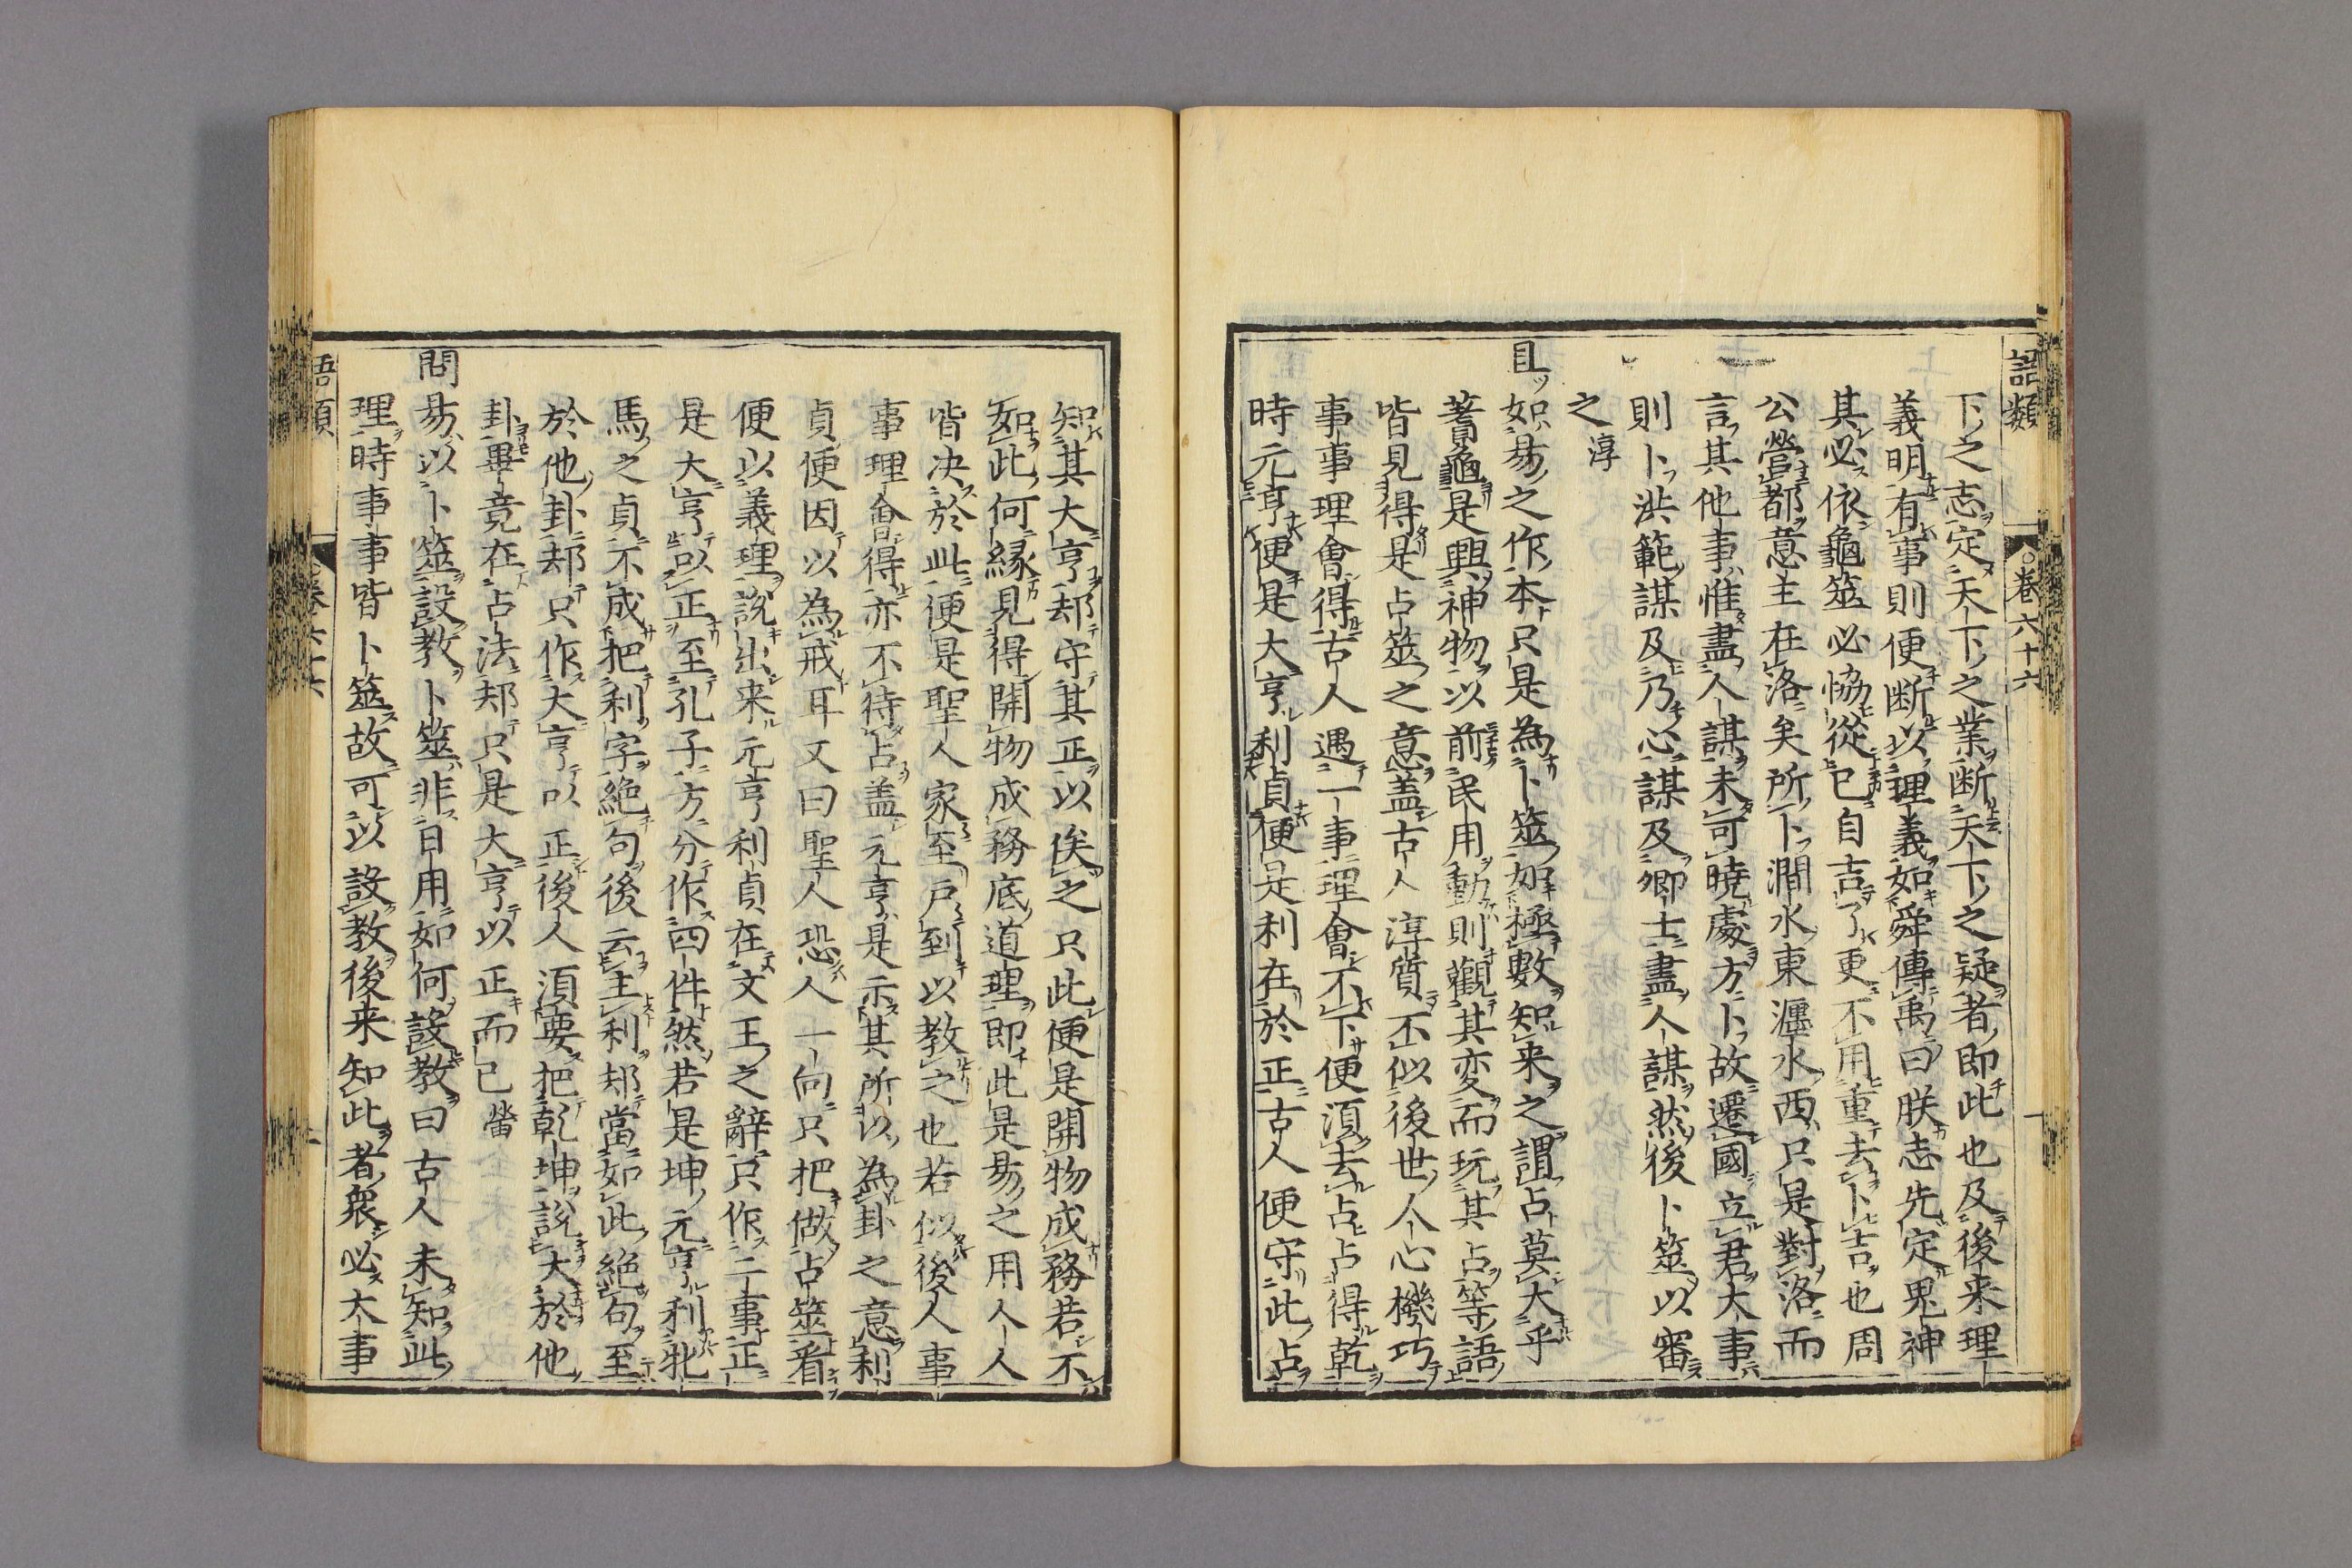 語類
卷六十六
下之志定天下之業断天下之疑者即此也及後来理
義明有事則便断以理義如舜傳禹曰朕志先定鬼神
其必依龜筮必協從已自吉了更不用重去卜吉也周
公營都意主在洛矣所卜澗水東瀍水西只是對洛而
言其他事惟盡人謀未可曉處方卜故遷國立君大事
則卜洪範謀及乃心謀及卿士盡人謀然後卜筮以審
之 淳
且如易之作本只是為卜筮如極數知来之謂占莫大乎
蓍龜是興神物以前民用動則觀其変而玩其占等語
皆見得是占筮之意盖古人淳質不似後世人心機巧
事事理會得古人遇一事理會不下便須去占占得乾
時元亨便是大亨利貞便是利在於正古人便守此占
知其大亨却守其正以俟之只此便是開物成務若不
如此何緣見得開物成務底道理即此是易之用人人
皆决於此便是聖人家至户到以教之也若似後人事
事理會得亦不待占盖元亨是示其所以為卦之意利
貞便因以為戒耳又曰聖人恐人一向只把做占筮看
便以義理說出来元亨利貞在文王之辭只作二事正
是大亨以正至孔子方分作四件然若是坤元亨利牝
馬之貞不成把利字絶句後云主利却當如此絶句至
於他卦却只作大亨以正後人須要把乾坤說大於他
卦畢竟在占法却只是大亨以正而已 㽦
問易以卜筮設教卜筮非日用如何設教曰古人未知此
理時事事皆卜筮故可以設教後来知此者衆必大事
語類
卷六十六